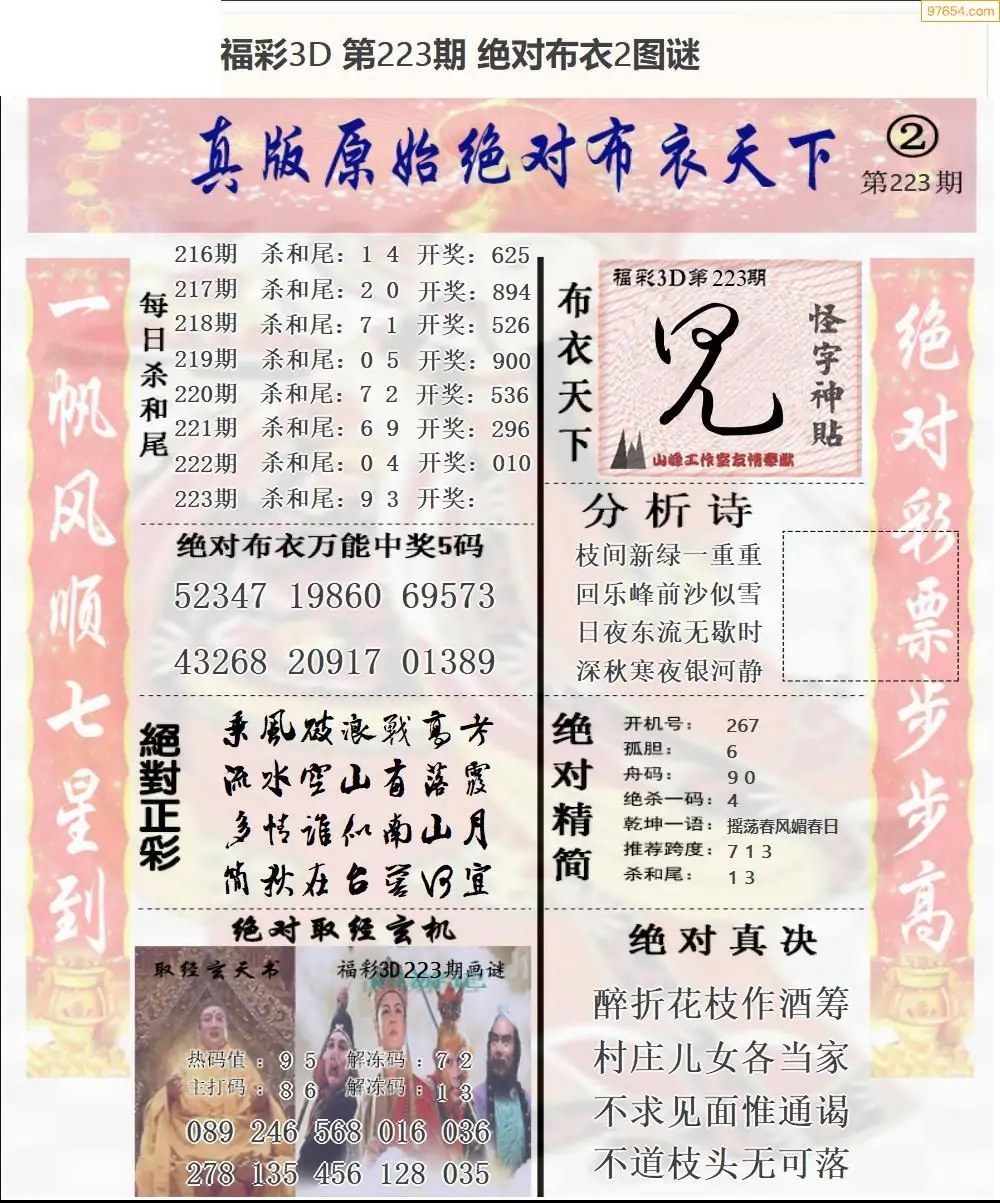 97654.com
福彩3D 第223期 绝对布衣2图谜
真版原始绝对布衣天下
②
第223期
一帆风顺七星到
每日杀和尾
216期 杀和尾：1 4 开奖：625
217期 杀和尾：2 0 开奖：894
218期 杀和尾：7 1 开奖：526
219期 杀和尾：0 5 开奖：900
220期 杀和尾：7 2 开奖：536
221期 杀和尾：6 9 开奖：296
222期 杀和尾：0 4 开奖：010
223期 杀和尾：9 3 开奖：
绝对布衣万能中奖5码
52347 19860 69573
43268 20917 01389
絕對正彩
乘風破浪戰高考
流水空山有落霞
多情誰似南山月
简秋在台
绝对取经玄机
取经玄天书
福彩3D223期画谜
热码值：9 5 解冻码：7 2
主打码：8 6 解冻码：1 3
089 246 568 016 036
278 135 456 128 035
布衣天下
福彩3D第223期
怪字神貼
山峰工作室友情奉献
分析诗
枝间新绿一重重
回乐峰前沙似雪
日夜东流无歇时
深秋寒夜银河静
绝对精简
开机号：267
孤胆：6
舟码：9 0
绝杀一码：4
乾坤一语：摇荡春风媚春日
推荐跨度：7 1 3
杀和尾：1 3
绝对真决
醉折花枝作酒筹
村庄儿女各当家
不求见面惟通谒
不道枝头无可落
绝对彩票步步高